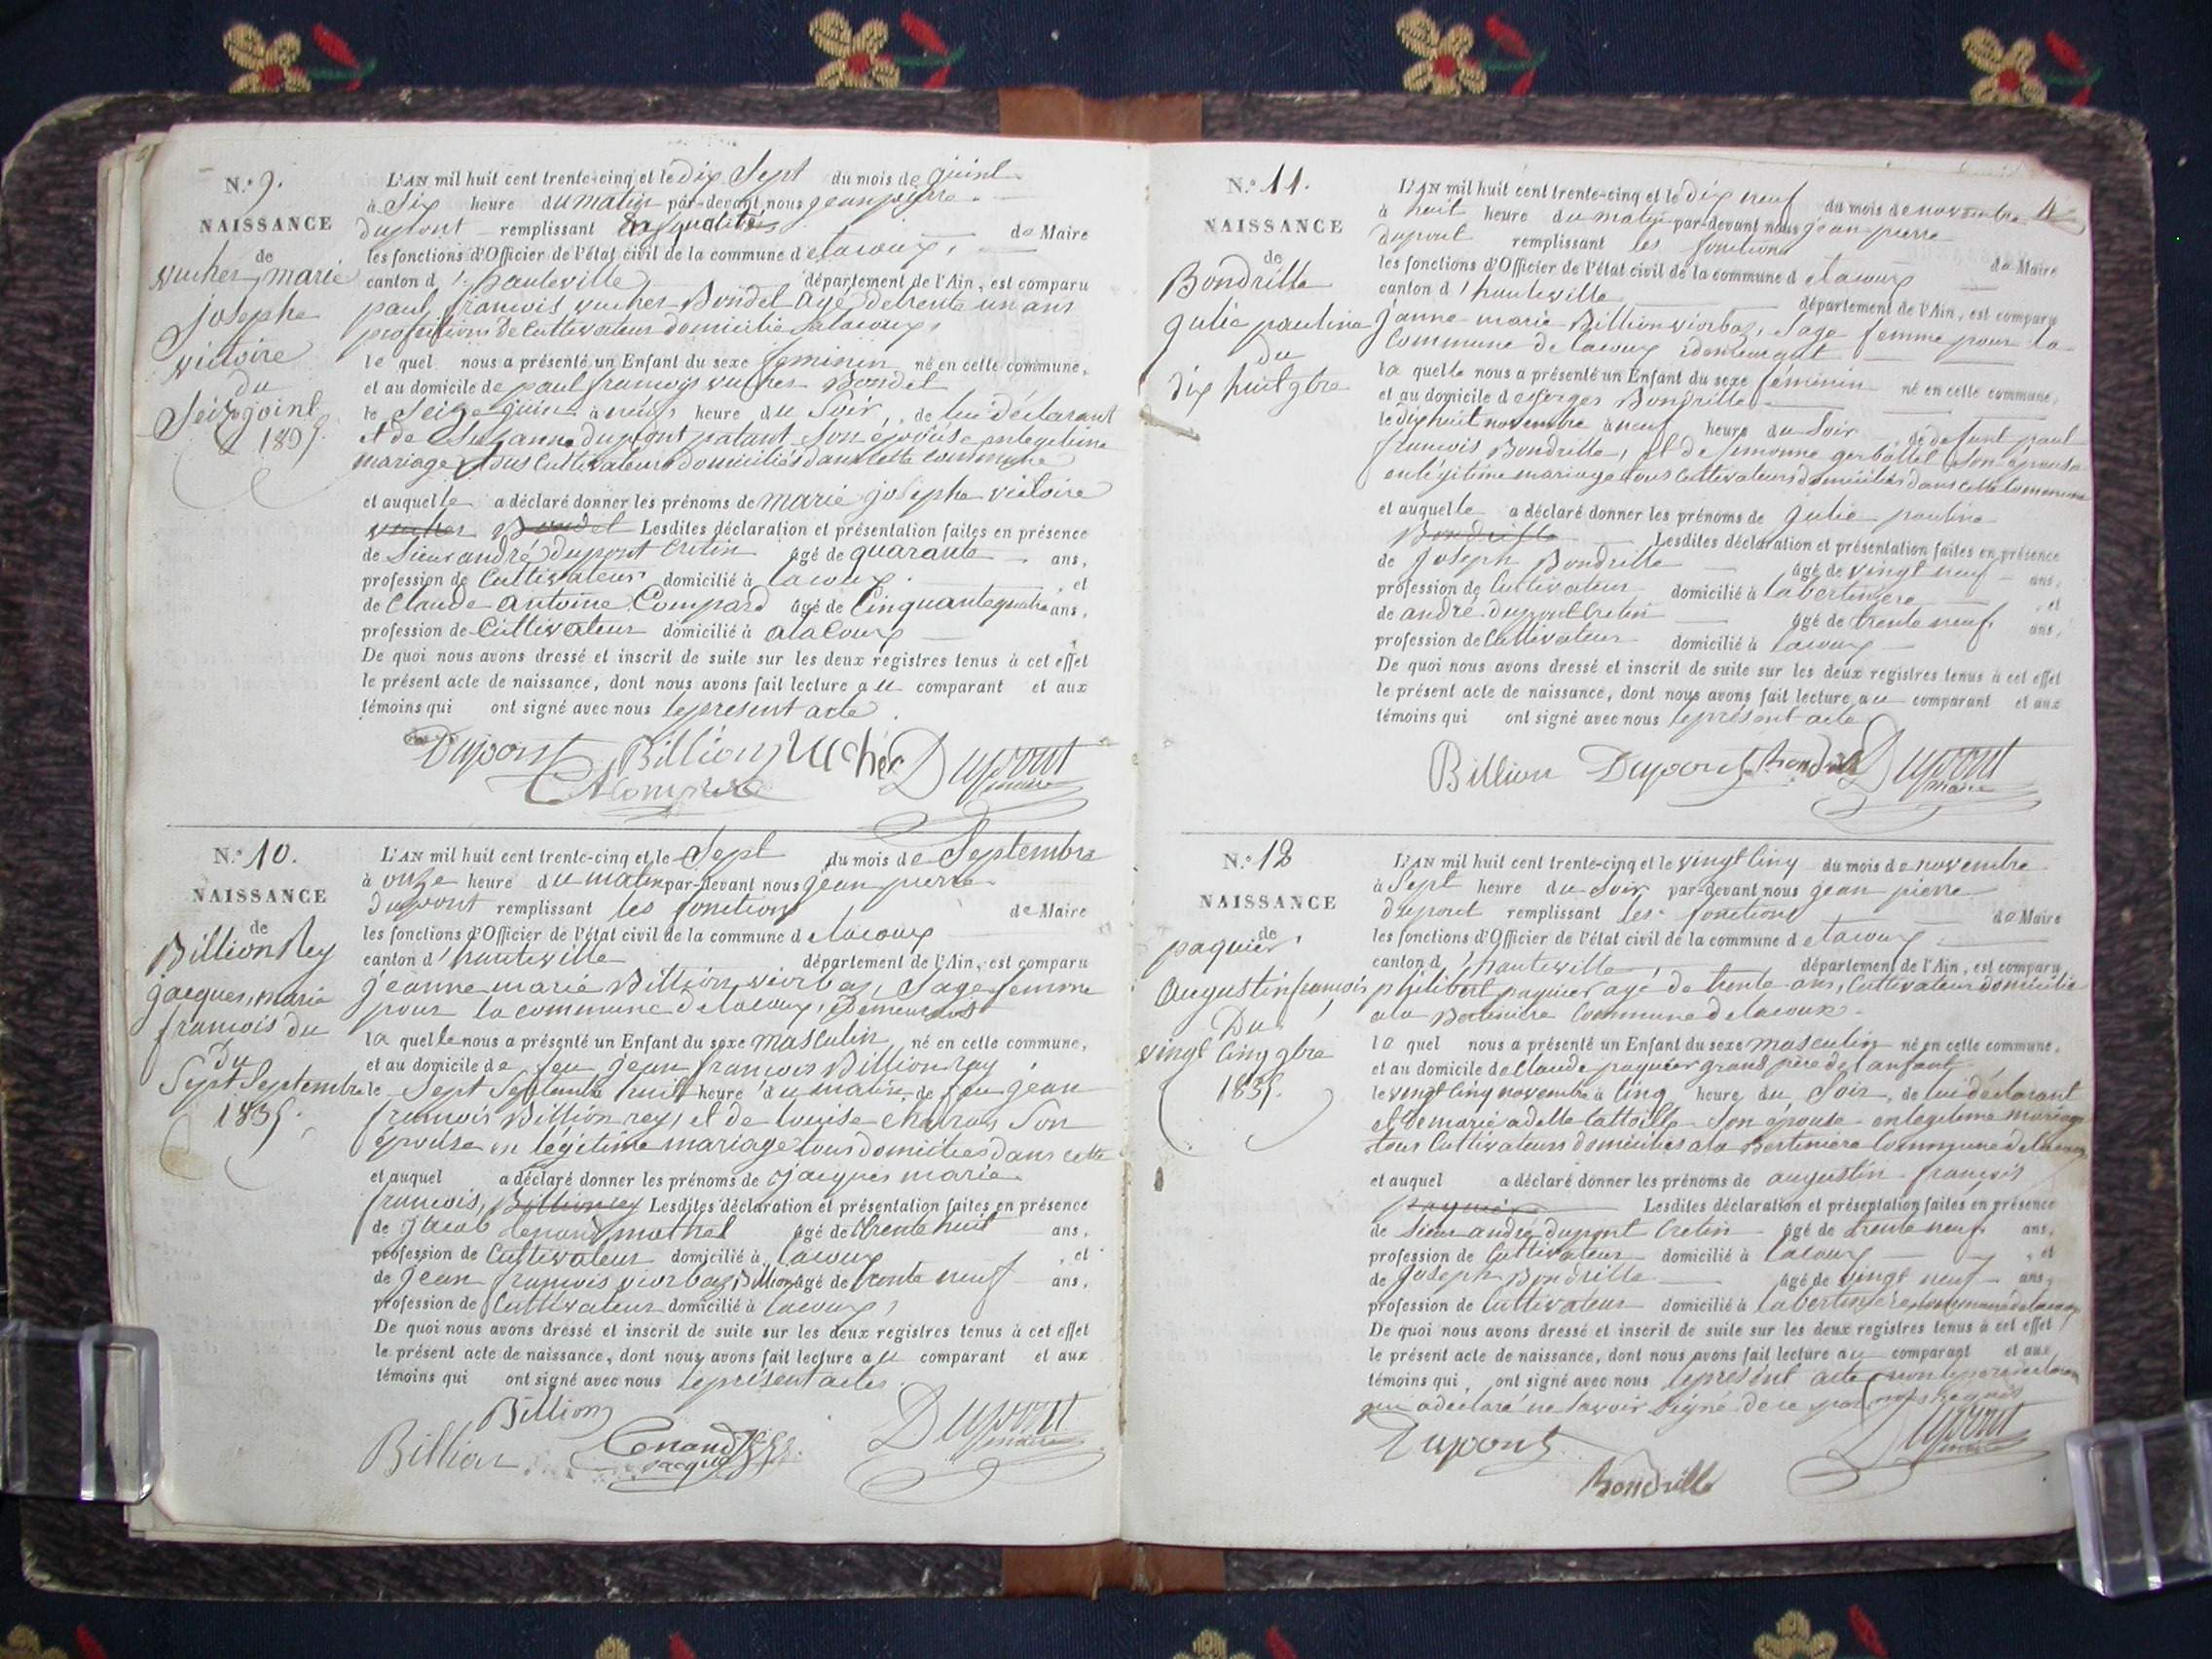 N.º 9.
NAISSANCE
de
vucher marie
josephe
victoire
du
Seize joint
1835.
L'AN mil huit cent trente-cinq et le dix Sept du mois de juint
à Six heure du matin par-devant nous jean pierre
dupont remplissant de Maire
les fonctions d'Officier de l'état civil de la commune d elacoux,
canton d'hauteville département de l'Ain, est comparu
paul françois vucher Bondet agé de trente un ans
profeitions de Cultivateur domicilié a lacoux,
le quel nous a présenté un Enfant du sexe feminin né en cette commune,
et au domicile de paul françois vucher Bondet
le Seize juin à neufs heure du Soir, de lui déclarant
et de Suzanne dupont patant Son épouse enlegetime
mariage tous Cultivateurs domiciliés dans cette commune
et auquelle a déclaré donner les prénoms de marie josephe victoire
vucher Bondet Lesdites déclaration et présentation faites en présence
de Sieur andré dupont Cretin âgé de quarante ans,
profession de Cultivateur domicilié à lacoux. , et
de Claude Antoine Compard âgé de Cinquante quatre ans,
profession de Cultivateur domicilié à alacoux
De quoi nous avons dressé et inscrit de suite sur les deux registres tenus à cet effet
le présent acte de naissance, dont nous avons fait lecture au comparant et aux
témoins qui ont signé avec nous le present acte
Dupont Billion Vucher Dupont
maire
N.º 10.
NAISSANCE
de
Billion Rey
jacques, marie
francois du
du
Sept Septembre
1835.
L'AN mil huit cent trente-cinq et le Sept du mois de Septembre
à onze heure du matin par-devant nous jean pierre
Dupont remplissant les fonctions de Maire
les fonctions d'Officier de l'état civil de la commune d elacoux
canton d'hauteville département de l'Ain, est comparu
jeanne marie Billion viorbas, Sage femme
pour la commune de lacoux, demeurant
la quelle nous a présenté un Enfant du sexe masculin né en cette commune,
et au domicile de feu jean françois Billion ray
le Sept Septembre huit heure du matin, de feu jean
françois Billion rey, et de louise Son
épouse en légitime mariage tous domiciliés dans cette
et auquel a déclaré donner les prénoms de jacques marie
françois, Billion rey Lesdites déclaration et présentation faites en présence
de jacob lenand mathel âgé de trente huit ans,
profession de Cultivateur domicilié à lacoux , et
de jean françois viorbaz Billion âgé de trente neuf ans,
profession de Cultivateur domicilié à lacoux,
De quoi nous avons dressé et inscrit de suite sur les deux registres tenus à cet effet
le présent acte de naissance, dont nous avons fait lecture au comparant et aux
témoins qui ont signé avec nous le présent actes
Billion
Billion Dupont
maire
N.º 11.
NAISSANCE
de
Bondrille
julie pauline
du
dix huit 9bre
L'AN mil huit cent trente-cinq et le dix neuf du mois de novembre
à huit heure du matin par-devant nous jean pierre
dupont remplissant les fonctions de Maire
les fonctions d'Officier de l'état civil de la commune d elacoux
canton d'hauteville département de l'Ain, est comparu
janne marie Billion viorbas, Sage femme pour la
Commune de lacoux idemeurant
la quelle nous a présenté un Enfant du sexe féminin né en cette commune,
et au domicile de Bondrille
le dix huit novembre à neuf heure du Soir de defunt paul
francois Bondrille, et de simonne gerbottet Son épouse
en légitime mariage tous Cultivateurs domiciliés dans cette Commune
et auquelle a déclaré donner les prénoms de julie pauline
Bondrille Lesdites déclaration et présentation faites en présence
de joseph Bondrille âgé de vingt neuf ans,
profession de Cultivateur domicilié à labertiniere , et
de andré dupont Cretin âgé de trente neuf ans,
profession de Cultivateur domicilié à lacoux
De quoi nous avons dressé et inscrit de suite sur les deux registres tenus à cet effet
le présent acte de naissance, dont nous avons fait lecture au comparant et aux
témoins qui ont signé avec nous le présent acte
Billion Dupont Bondrille Dupont
maire
N.º 12
NAISSANCE
de
paquier
augustin francois
Du
vingt Cinq 9bre
1835.
L'AN mil huit cent trente-cinq et le vingt Cinq du mois de novembre
à Sept heure du Soir par-devant nous jean pierre
dupont remplissant les fonctions de Maire
les fonctions d'Officier de l'état civil de la commune d elacoux
canton d'hauteville département de l'Ain, est comparu
philibert paquier agé de trente ans, Cultivateur domicilié
a la Bertiniere Commune de lacoux
le quel nous a présenté un Enfant du sexe masculin né en cette commune,
et au domicile de Claude paquier grand père de l'anfant
le vingt Cinq novembre à Cinq heure du Soir, de lui déclarant
et de marie adelle Son épouse en legitime mariage
tous Cultivateurs domiciliés a la Bertiniere Commune de lacoux
et auquel a déclaré donner les prénoms de augustin françois
paquier Lesdites déclaration et présentation faites en présence
de Sieur andré dupont Cretin âgé de trente neuf ans,
profession de Cultivateur domicilié à lacoux , et
de joseph Bondrille âgé de vingt neuf ans,
profession de Cultivateur domicilié à labertiniere commune de lacoux
De quoi nous avons dressé et inscrit de suite sur les deux registres tenus à cet effet
le présent acte de naissance, dont nous avons fait lecture au comparant et aux
témoins qui, ont signé avec nous le présent acte non le pere
qui a déclaré ne Savoir Signé de ce par nous requis
Dupont Dupont
maire
Bondrille